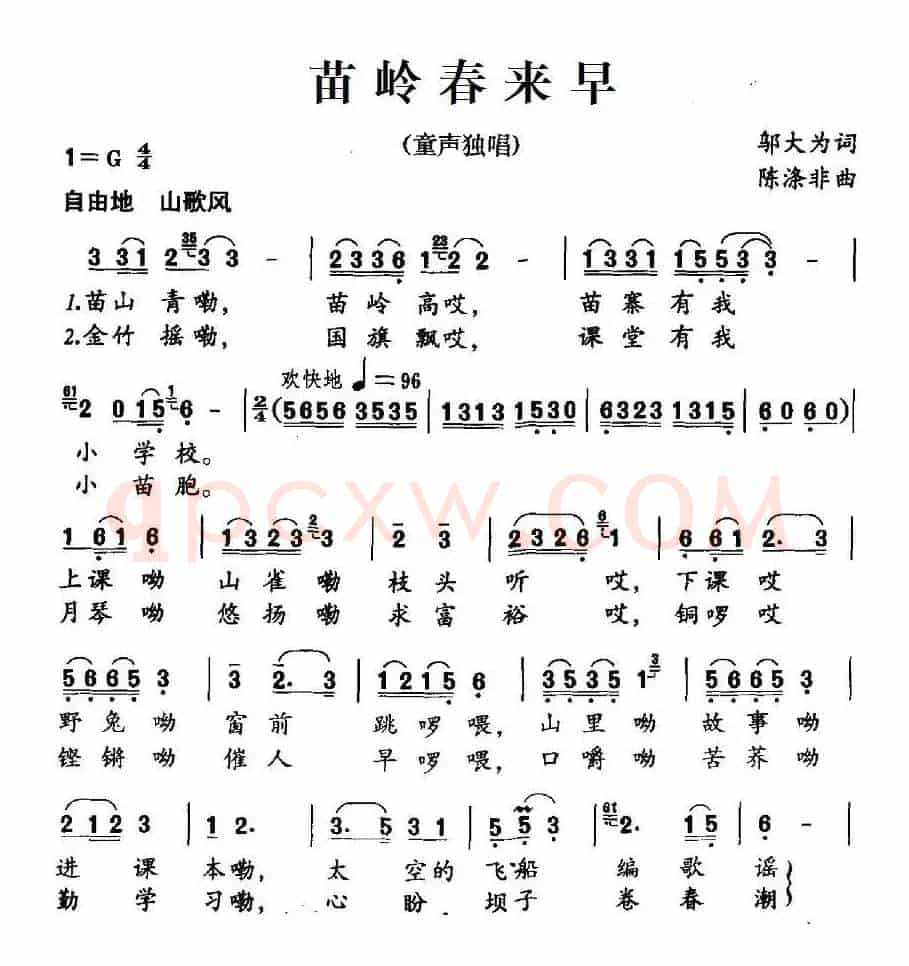 苗岭春来早
(童声独唱)
1=G 4/4
邬大为词
陈涤非曲
自由地 山歌风
3 331 2 35 33 - | 2336 1 23 22 - | 1331 1553 3 - |
1.苗山 青嘞, 苗岭 高哎, 苗寨有我
2.金竹 摇嘞, 国旗 飘哎, 课堂有我
欢快地 ♩=96
61 2 0 15 1 6 - | 2/4 (5656 3535 | 1313 1530 | 6323 1315 | 60 60) |
小 学校。
小 苗胞。
qpcxw.COM
1 61 6 | 1323 2 3 | 2 3 | 2326 6 1 | 661 2. 3
上课呦 山雀嘞 枝头 听 哎, 下课哎
月琴呦 悠扬嘞 求富 裕 哎, 铜啰哎
5665 3 | 3 2. 3 | 1215 6 | 3535 1 3 | 5665 3 |
野兔呦 窗前 跳啰喂, 山里呦 故事呦
铿锵呦 催人 早啰喂, 口嚼呦 苦荞呦
2 12 3 | 1 2. | 3. 5 31 | 5 5 3 | 61 2. 15 | 6 - |
进课 本嘞, 太空的 飞船 编歌谣
勤学 习嘞, 心盼 坝子 卷春潮